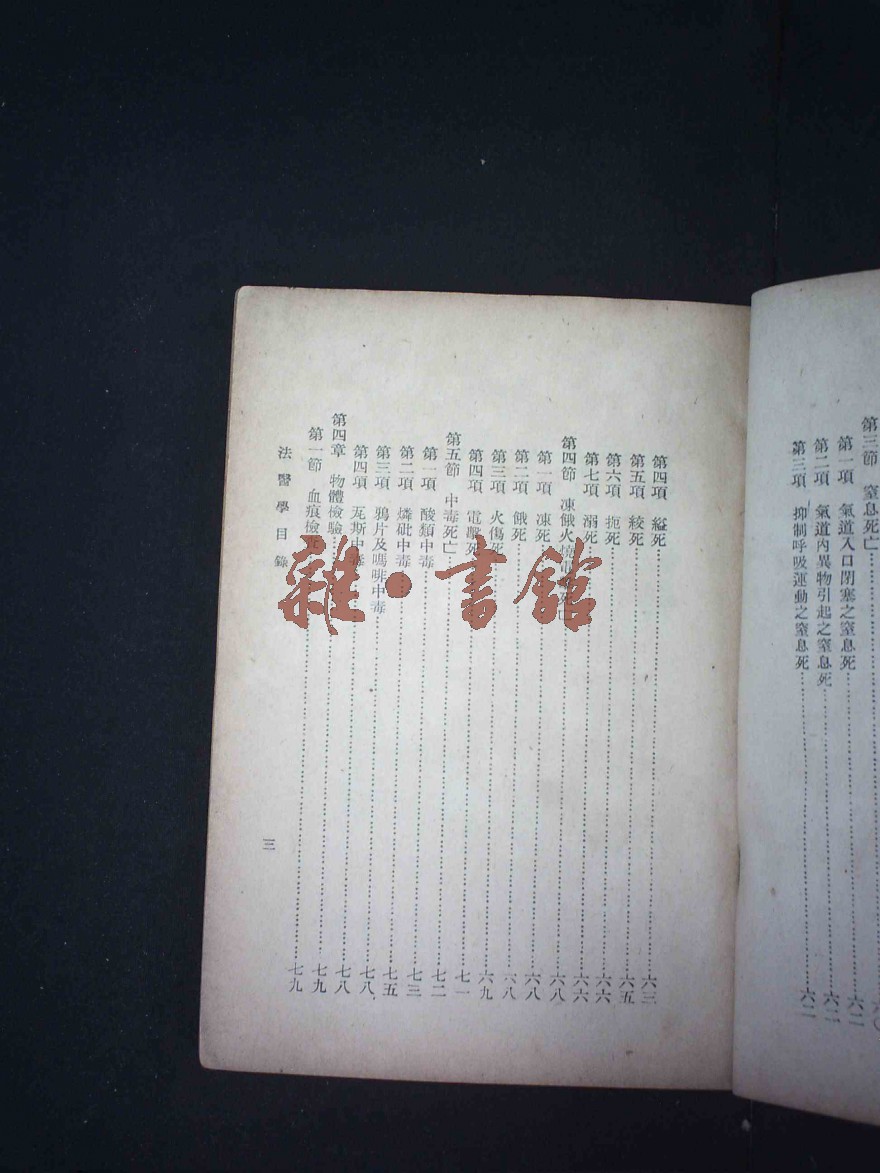 第三節 窒息死亡……六〇
第一項 氣道入口閉塞之窒息死……六二
第二項 氣道內異物引起之窒息死……六二
第三項 抑制呼吸運動之窒息死……六二
第四項 縊死……六三
第五項 絞死……六五
第六項 扼死……六六
第七項 溺死……六六
第四節 凍餓火燒死亡……六八
第一項 凍死……六八
第二項 餓死……六八
第三項 火傷死……六九
第四項 電擊死……七一
第五節 中毒死亡……七二
第一項 酸類中毒……七三
第二項 燐砒中毒……七五
第三項 鴉片及嗎啡中毒……七八
第四項 瓦斯中毒……七八
第四章 物體檢驗……七九
第一節 血痕檢查……七九
法醫學目錄
三
雜·書館